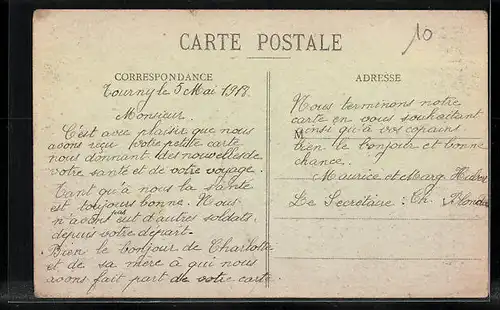 10
CARTE POSTALE
CORRESPONDANCE
Tourny le 5 Mai 1918.
Monsieur.
C'est avec plaisir que nous
avons reçu votre petite carte
nous donnant des nouvelles de
votre santé et de votre voyage.
Tant qu'à nous la santé
est toujours bonne. Nous
n'avons pas eut d'autres soldats,
depuis votre départ.
Bien le bonjour de Charlotte
et de sa mère à qui nous
avons fait part de votre carte.
ADRESSE
Nous terminons notre
carte en vous souhaitant
M
ainsi qu'à vos copains
bien le bonjour et bonne
chance.
Maurice et Marg.
Le Secrétaire : Ch.